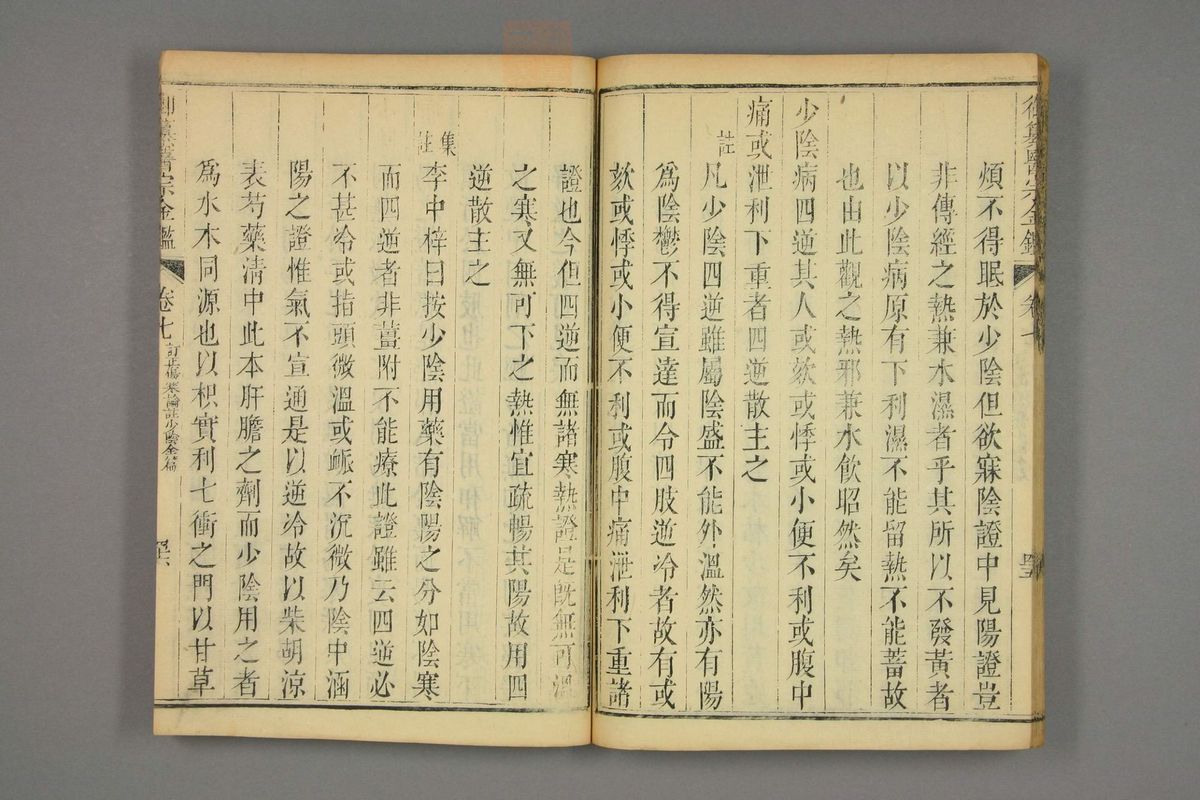 御纂醫宗金鑑 卷七
煩不得眠於少陰但欲寐陰證中見陽證豈
非傳經之熱兼水濕者乎其所以不發黃者
以少陰病原有下利濕不能留熱不能蓄故
也由此觀之熱邪兼水飲昭然矣
少陰病四逆其人或欬或悸或小便不利或腹中
痛或泄利下重者四逆散主之
註 凡少陰四逆雖屬陰盛不能外溫然亦有陽
為陰鬱不得宣達而令四肢逆冷者故有或
欬或悸或小便不利或腹中痛泄利下重諸
證也今但四逆而無諸寒熱證是既無可溫
之寒又無可下之熱惟宜疏暢其陽故用四
逆散主之
集註 李中梓曰按少陰用藥有陰陽之分如陰寒
而四逆者非薑附不能療此證雖云四逆必
不甚冷或指頭微溫或脈不沉微乃陰中涵
陽之證惟氣不宣通是以逆冷故以柴胡涼
表芍藥清中此本肝膽之劑而少陰用之者
為水木同源也以枳實利七衝之門以甘草
御纂醫宗金鑑 卷七 訂正傷寒論註少陰全篇